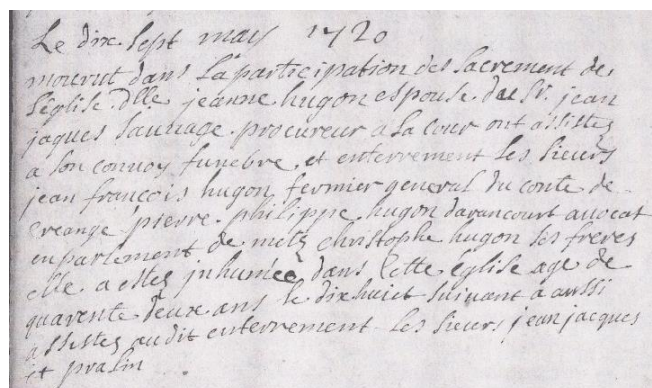 Le dix. Sept may 1720
mourut dans La participation des Sacrement de
L'église. dlle jeanne. hugon espouse. du Sr. jean
jaques Sauuage. procureur a La Cour ont assistez
a son convoy funebre, et enterrement Les Sieurs
jean françois hugon, fermier general du conte de
creange pierre. philippe. hugon darancourt auocat
en parlement de metz christophe hugon ses freres
elle. a estez jnhumée dans Cette église age de
quarente deux ans le dixhuict suivant à aussi
assistez audit enterrement Les Sieurs jean jacques
et praslin